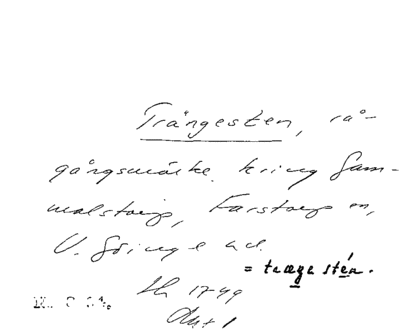 Trångesten, rå-
gångsmärke kring Gam-
malstorp, Farstorp sn,
V. Göinge hd.
= træga stén.
Lh 1749
Akt 1